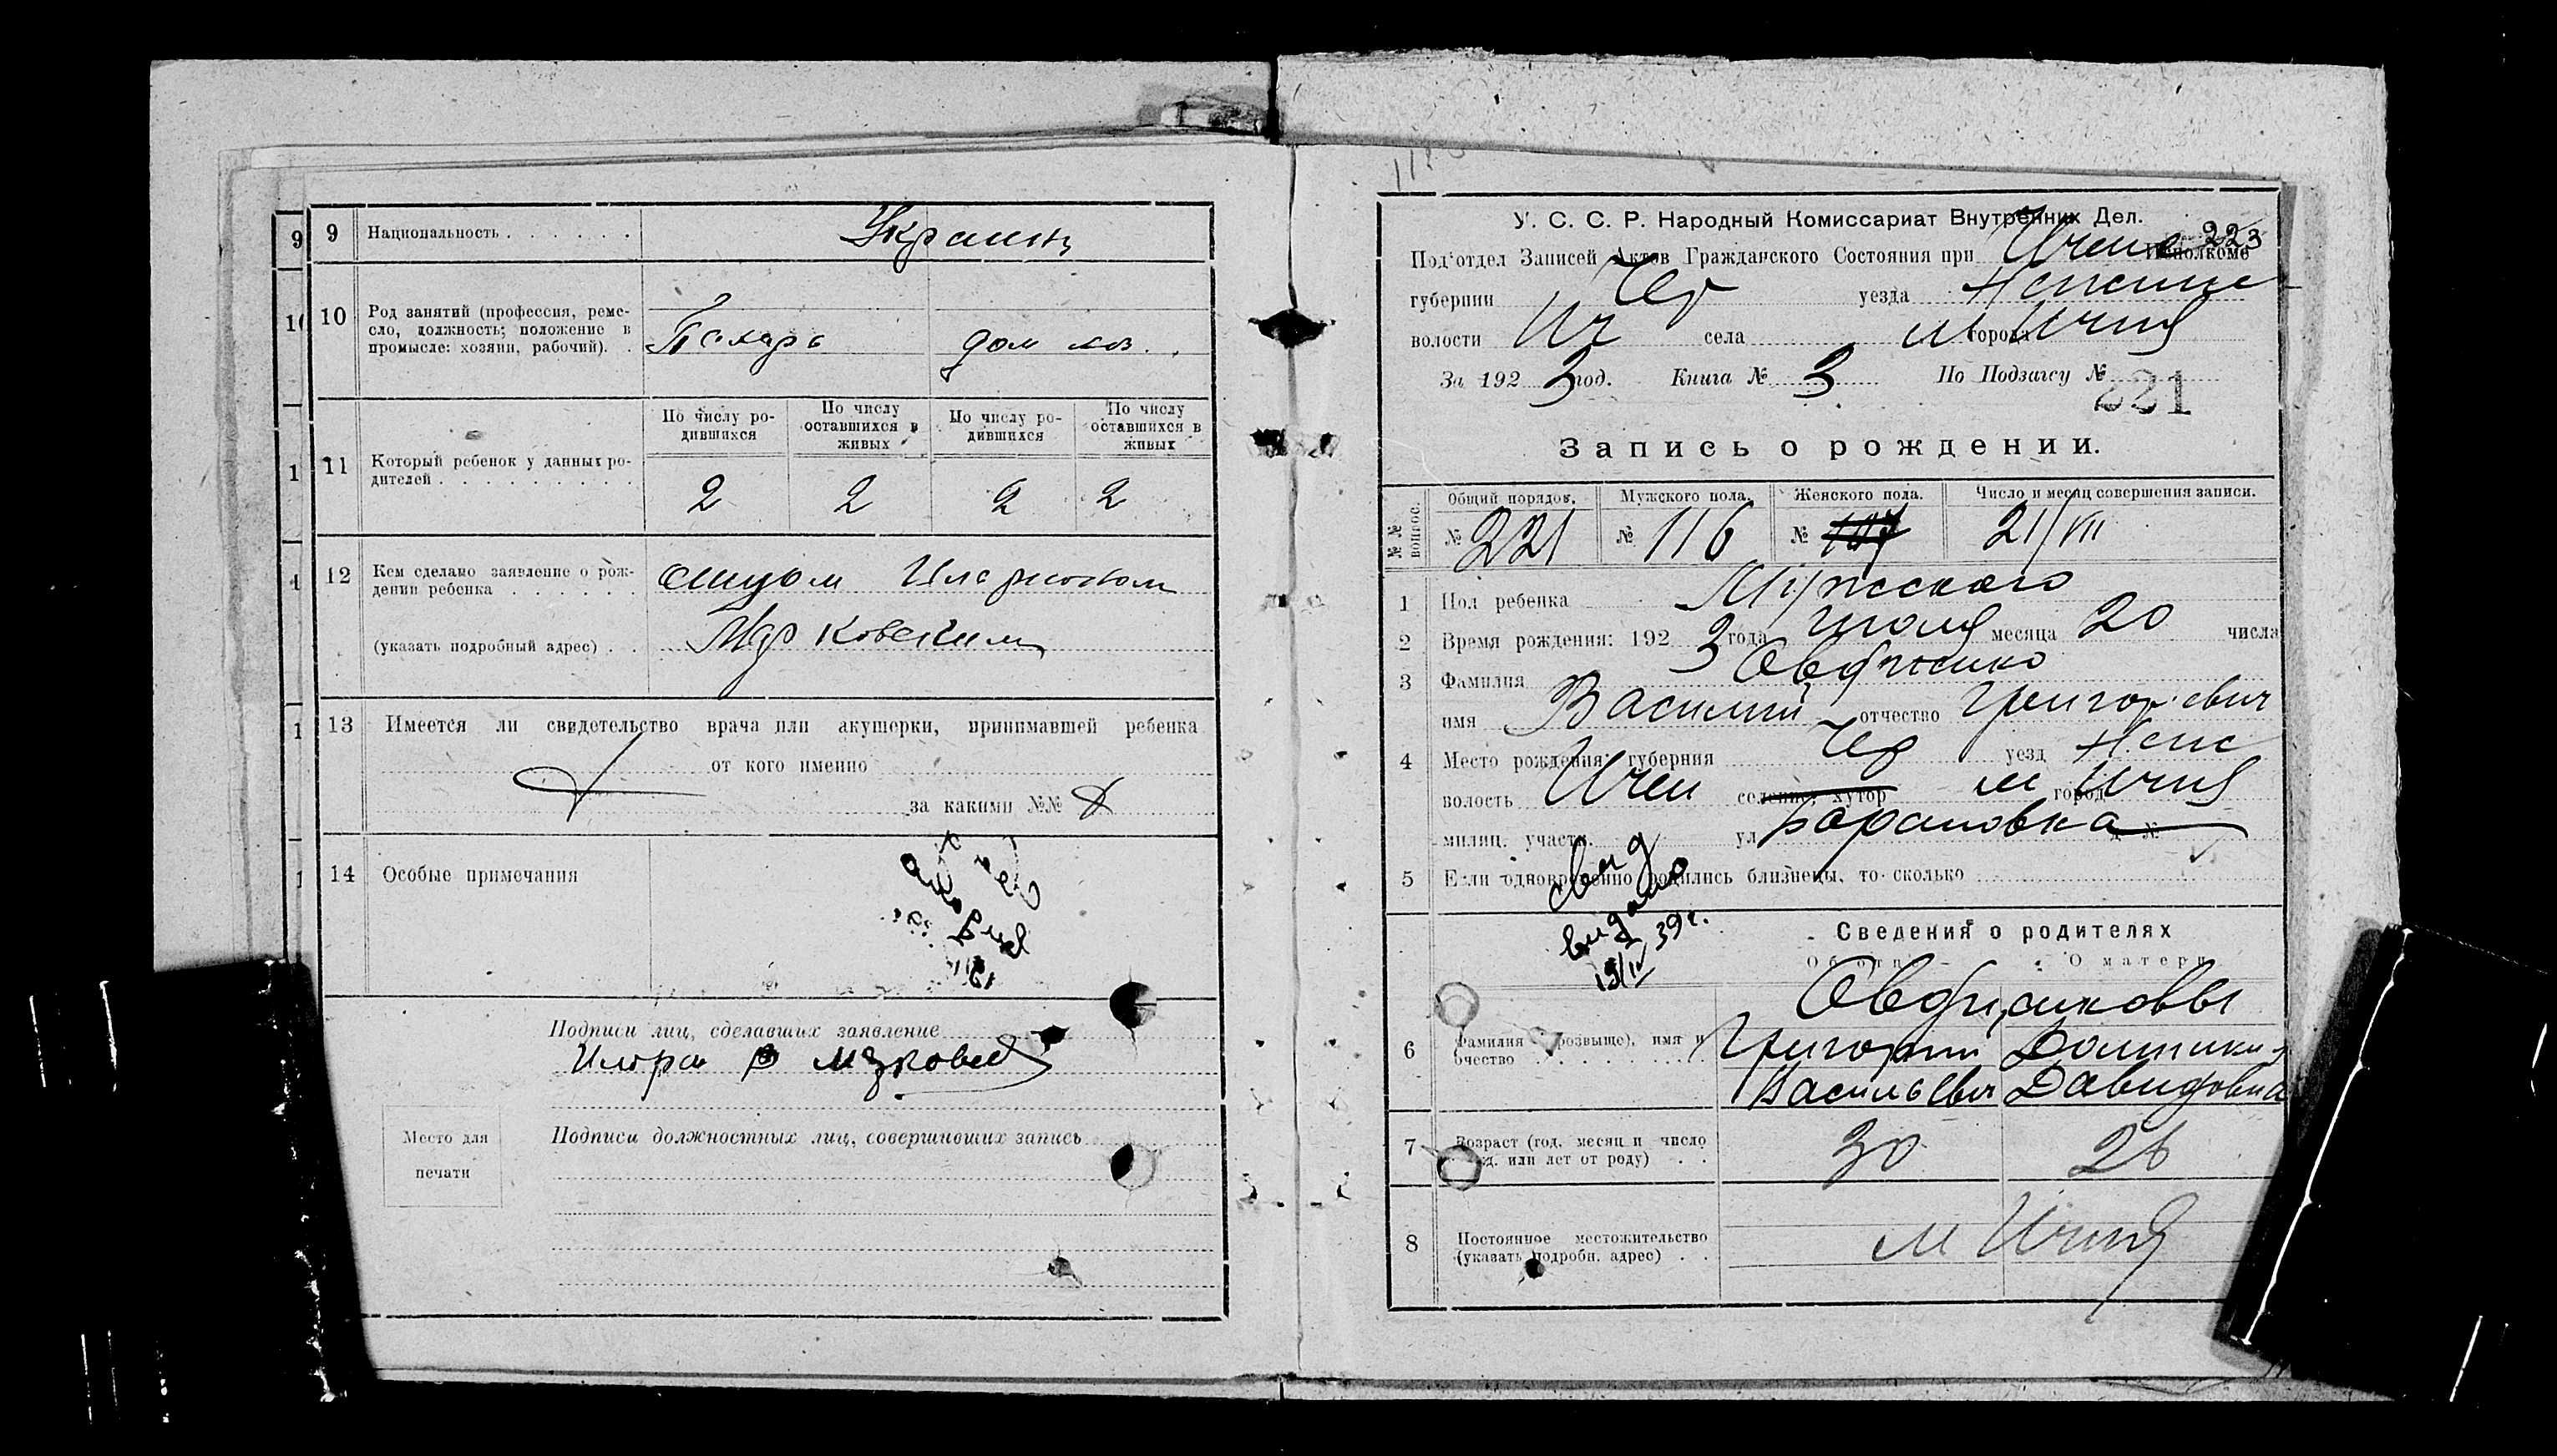 9 Национальность
Украинц
10 Род занятий (профессия, реме-
сло, должность; положение в
промысле: хозяин, рабочий).
Пахарь дом хоз.
11 Который ребенок у данных ро-
дителей
По числу ро-
дившихся
По числу
оставшихся в
живых
По числу ро-
дившихся
По числу
оставшихся в
живых
2 2 2 2
12 Кем сделано заявление о рож-
дении ребенка
(указать подробный адрес)
13 Имеется ли свидетельство врача или акушерки, принимавшей ребенка
от кого именно
за какими №№
14 Особые примечания
Подписи лиц, сделавших заявление
Подписи должностных лиц, совершивших запись
Место для
печати
У. С. С. Р. Народный Комиссариат Внутренних Дел.
223
Под'отдел Записей Актов Гражданского Состояния при Ичен Исполкоме
губернии Чер уезда Нежин
волости Ич села м города Ичня
За 1923 год. Книга № 3 По Подзагсу № 221
Запись о рождении.
№№ вопрос.
Общий порядов. Мужского пола. Женского пола. Число и месяц совершения записи.
№ 221 № 116 № 107 21/VII
1 Пол ребенка Мужского
2 Время рождения: 1923 года Июля месяца 20 числа
3 Фамилия
имя Василий отчество Григориевич
4 Место рождения: губерния Чер уезд Неж
волость Ичен селение, хутор м город Ичня
милиц. участк. ул Барановка д №
5 Если одновременно родились близнецы, то сколько
свид
видано
19/IV 39 г.
Сведения о родителях
Об отце О матери
6 Фамилия (прозвище), имя и
отчество
Григорий
Васильевич Давидовна
7 Возраст (год, месяц и число
рожд. или лет от роду)
30 26
8 Постоянное местожительство
(указать подробн. адрес)
м Ичня